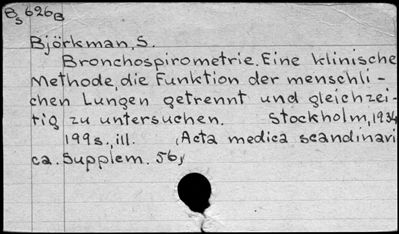 Bs 626B
Björkman, S.
Bronchospirometrie. Eine klinische
Methode, die Funktion der menschli-
chen Lungen getrennt und gleichzei-
tig zu untersuchen. Stockholm, 1934
199s., ill. (Acta medica scandinavi
ca. Supplem. 56)